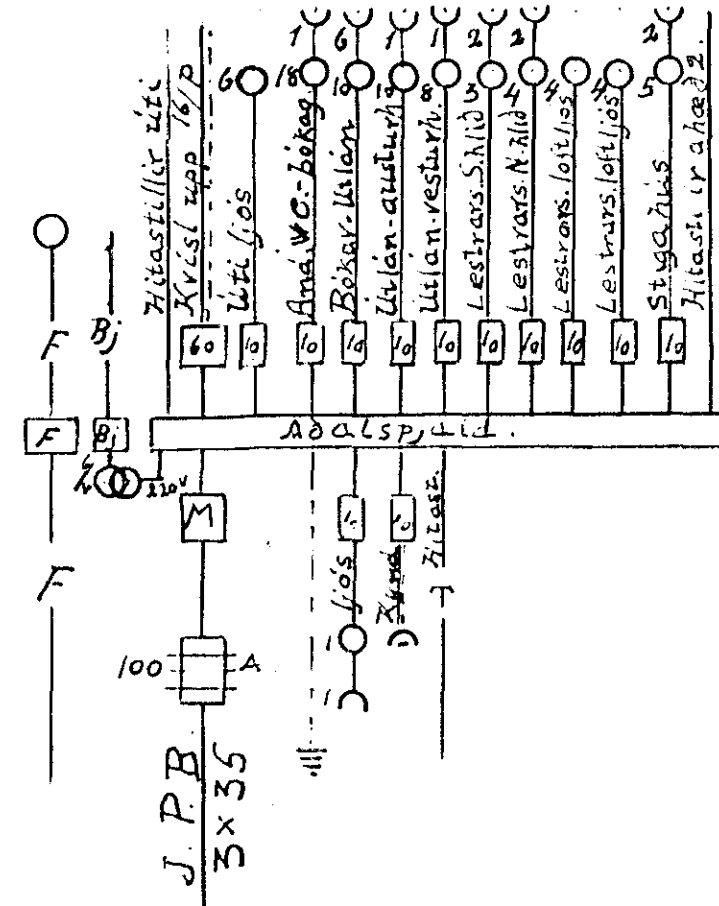 1 6 1 1 2 2 2
6 18 10 10 8 3 4 4 4 5
Hitastillir úti
Kvísl upp 16/p
Úti ljós
Bókav. Útlán
Útlán-austurh.
Útlán-vesturh.
Lestrars. S.hlið
Lestrars. N.hlið
Lestrars. loftljós
Lestrars. loftljós
Stigahús
F Bj
60 10 10 10 10 10 10 10 10 10 10
F Bj
Aðalspjald.
220V
M 10 10
Ljós
Kynd
Hitast.
F
1
100 A
1
J. P. B
3 x 35